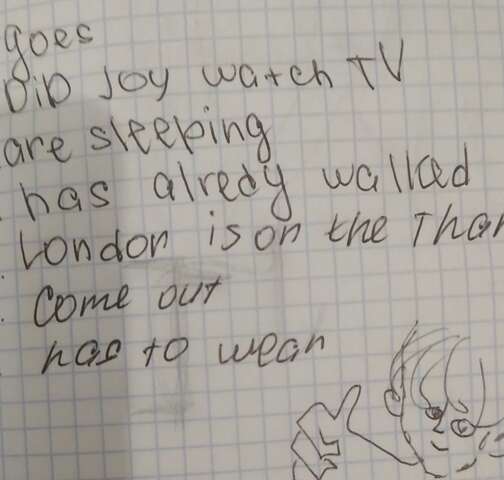 goes
Did Joy watch TV
are sleeping
has alredy walked
London is on the
Come out
has to wear